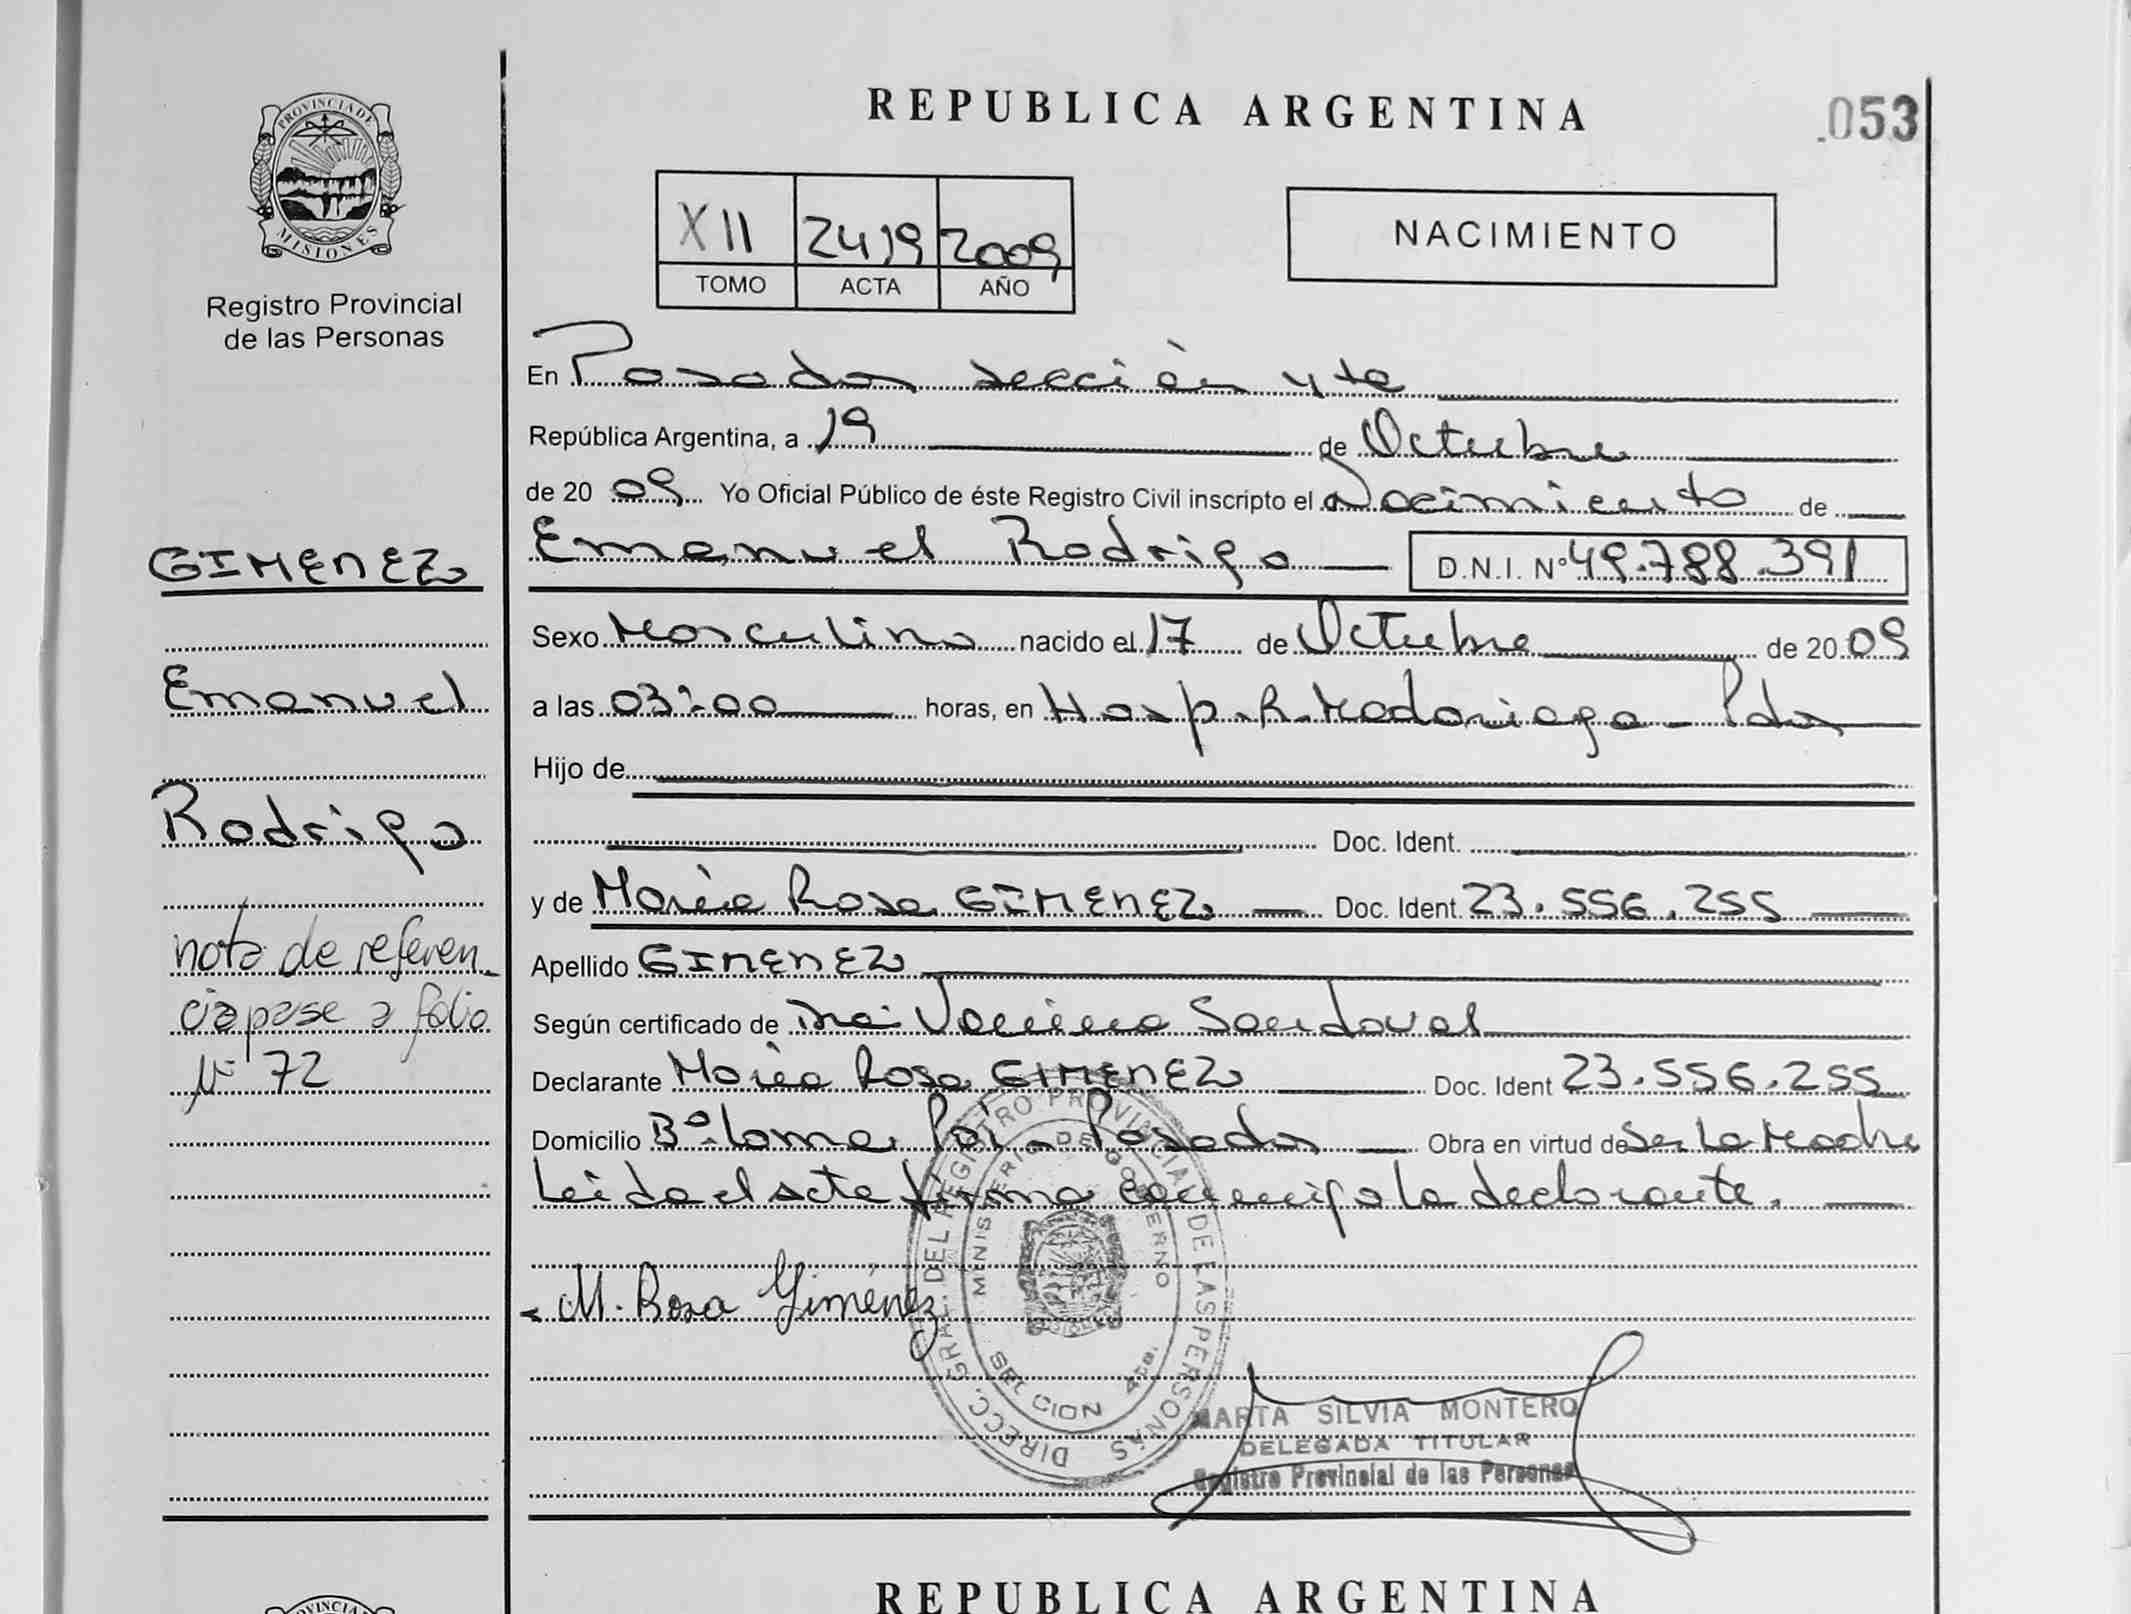 PROVINCIA DE
MISIONES
Registro Provincial
de las Personas
GIMENEZ
Emanuel
Rodrigo
nota de referen-
cia pase a folio
Nº 72
REPUBLICA ARGENTINA
.053
XII 2419 2009
TOMO ACTA AÑO
NACIMIENTO
En Posadas sección 4ta
República Argentina, a 19 de Octubre
de 20 09 Yo Oficial Público de éste Registro Civil inscripto el Nacimiento de
Emanuel Rodrigo D.N.I. Nº 49.788.391
Sexo Masculino nacido el 17 de Octubre de 20 09
a las 03:00 horas, en Hosp. R. Madariaga - Pdas
Hijo de
Doc. Ident.
y de María Rosa GIMENEZ Doc. Ident. 23.556.255
Apellido GIMENEZ
Según certificado de Sandoval
Declarante María Rosa GIMENEZ Doc. Ident 23.556.255
Domicilio Bº. Loma Poi - Posadas Obra en virtud de Ser La Madre
Leida el acta firma conmigo la declarante.
M. Rosa Giménez
DIRECC. GRAL. DEL REGISTRO PROVINCIAL DE LAS PERSONAS
MINISTERIO DE GOBIERNO
SECCION 4ta.
MARTA SILVIA MONTERO
DELEGADA TITULAR
Registro Provincial de las Personas
PROVINCIA
REPUBLICA ARGENTINA